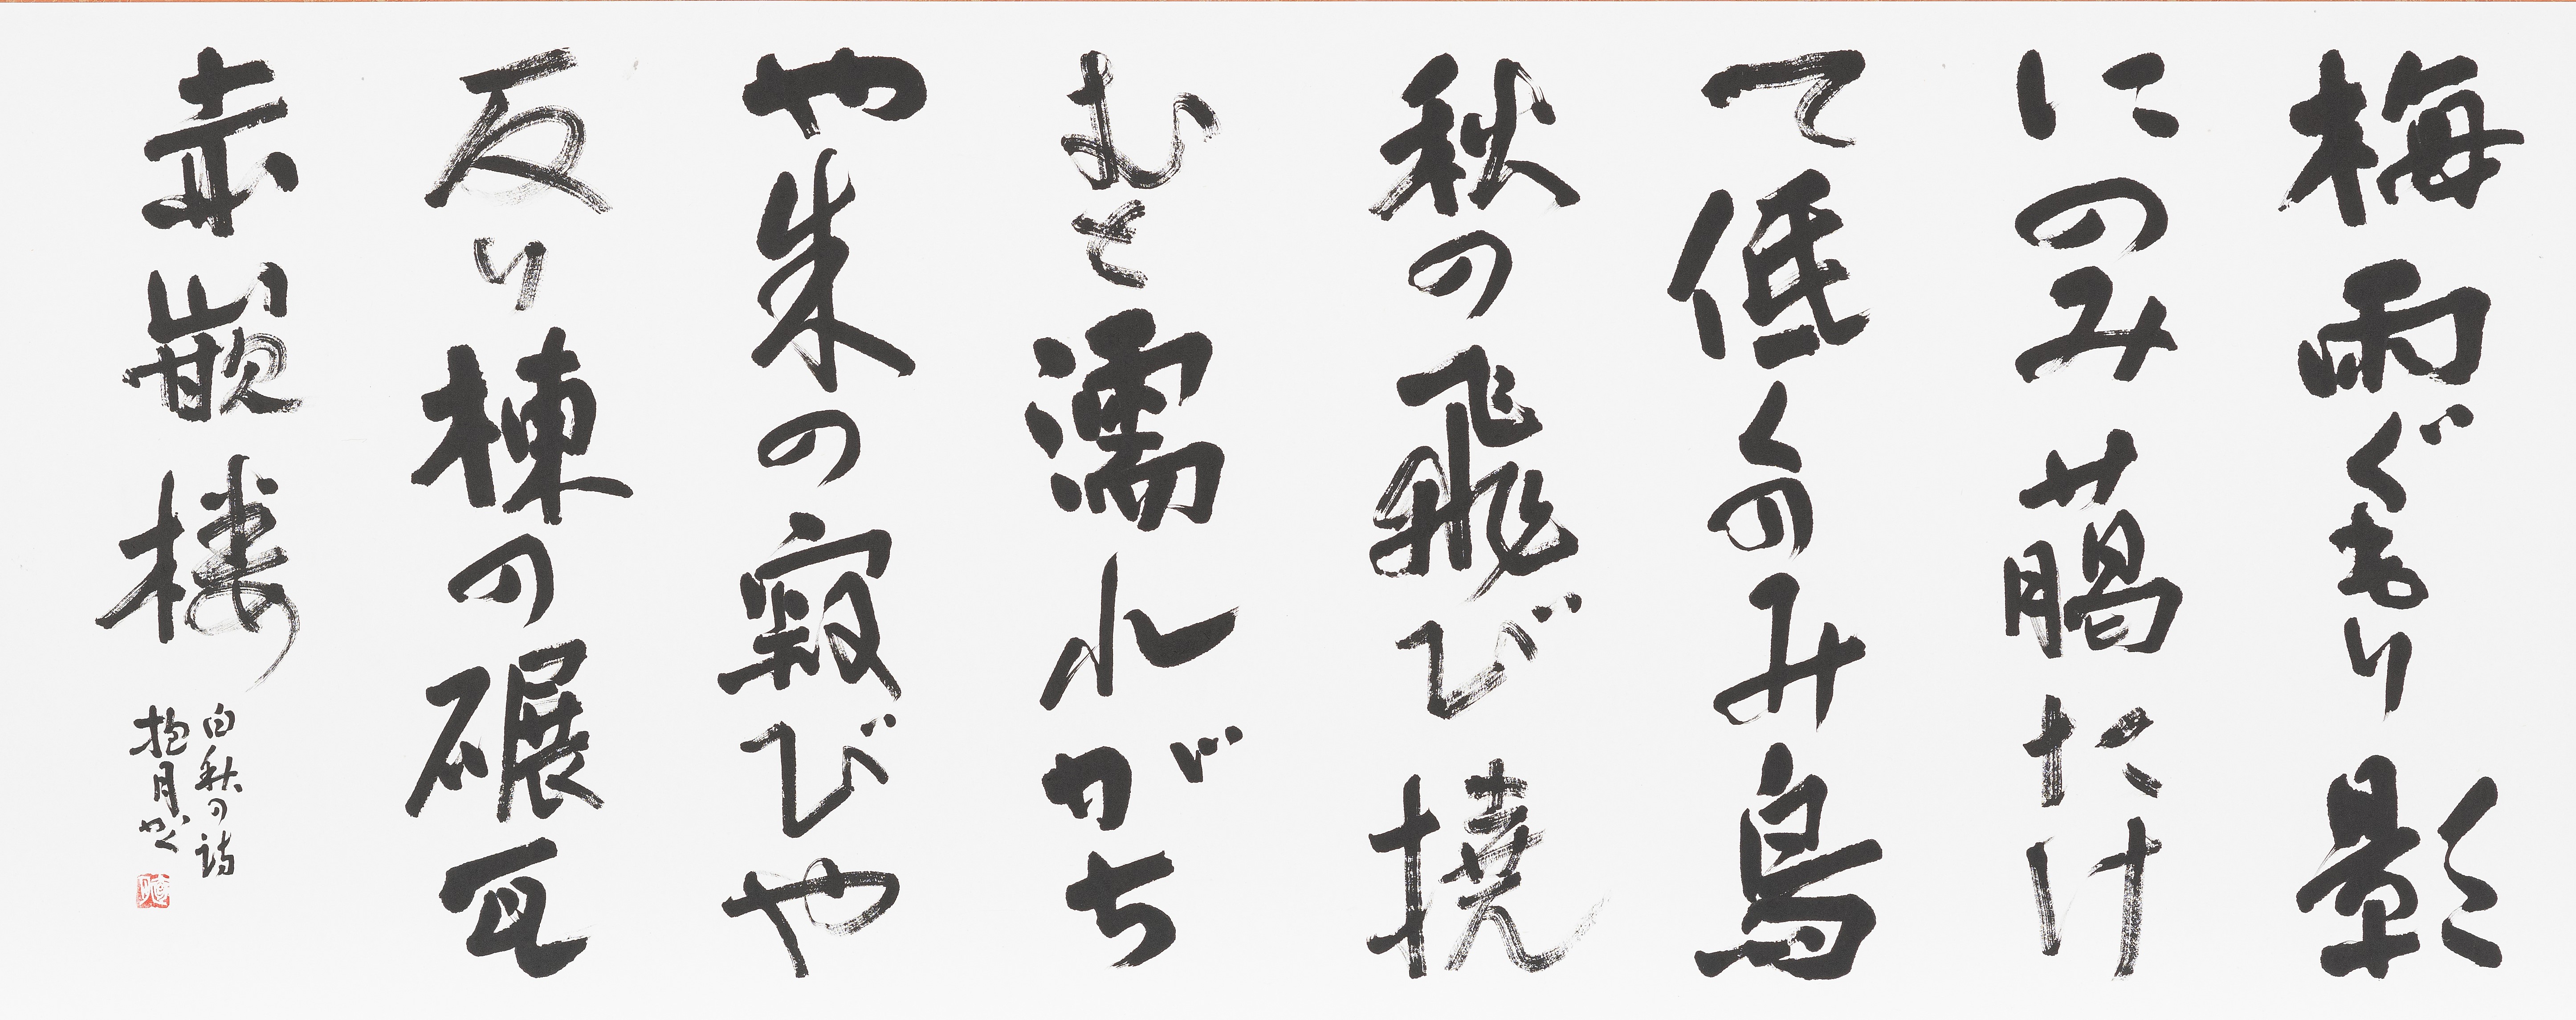 梅雨ぐもり影
にのみ蕩たけ
て低くのみ鳥
秋の飛び撓
むと濡れがち
や朱の寂びや
反り棟の碾瓦
赤嵌楼
白秋の詩
抱月かく